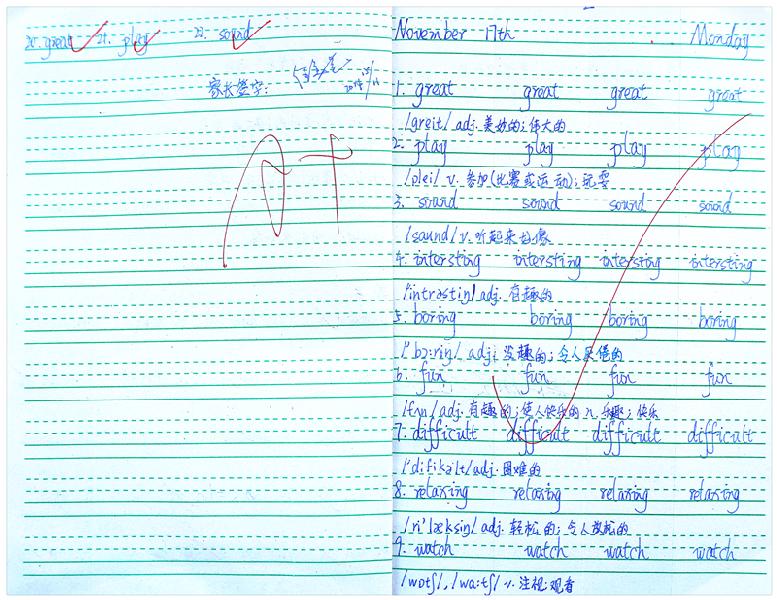 20. great 21. play 22. sound
家长签字:
A+
November 17th Monday
1. great great great great
/greit/ adj. 美妙的; 伟大的
2. play play play play
/plei/ v. 参加(比赛或运动); 玩耍
3. sound sound sound sound
/saund/ v. 听起来好像
4. intersting intersting intersting intersting
/'intrəstiŋ/ adj. 有趣的
5. boring boring boring boring
/'bɔ:riŋ/ adj. 没趣的; 令人厌倦的
6. fun fun fun fun
/fʌn/ adj. 有趣的; 使人快乐的 n. 乐趣; 快乐
7. difficult difficult difficult difficult
/'difikəlt/ adj. 困难的
8. relaxing relaxing relaxing relaxing
/ri'læksiŋ/ adj. 轻松的; 令人放松的
9. watch watch watch watch
/wɒtʃ/, /wa:tʃ/ v. 注视; 观看